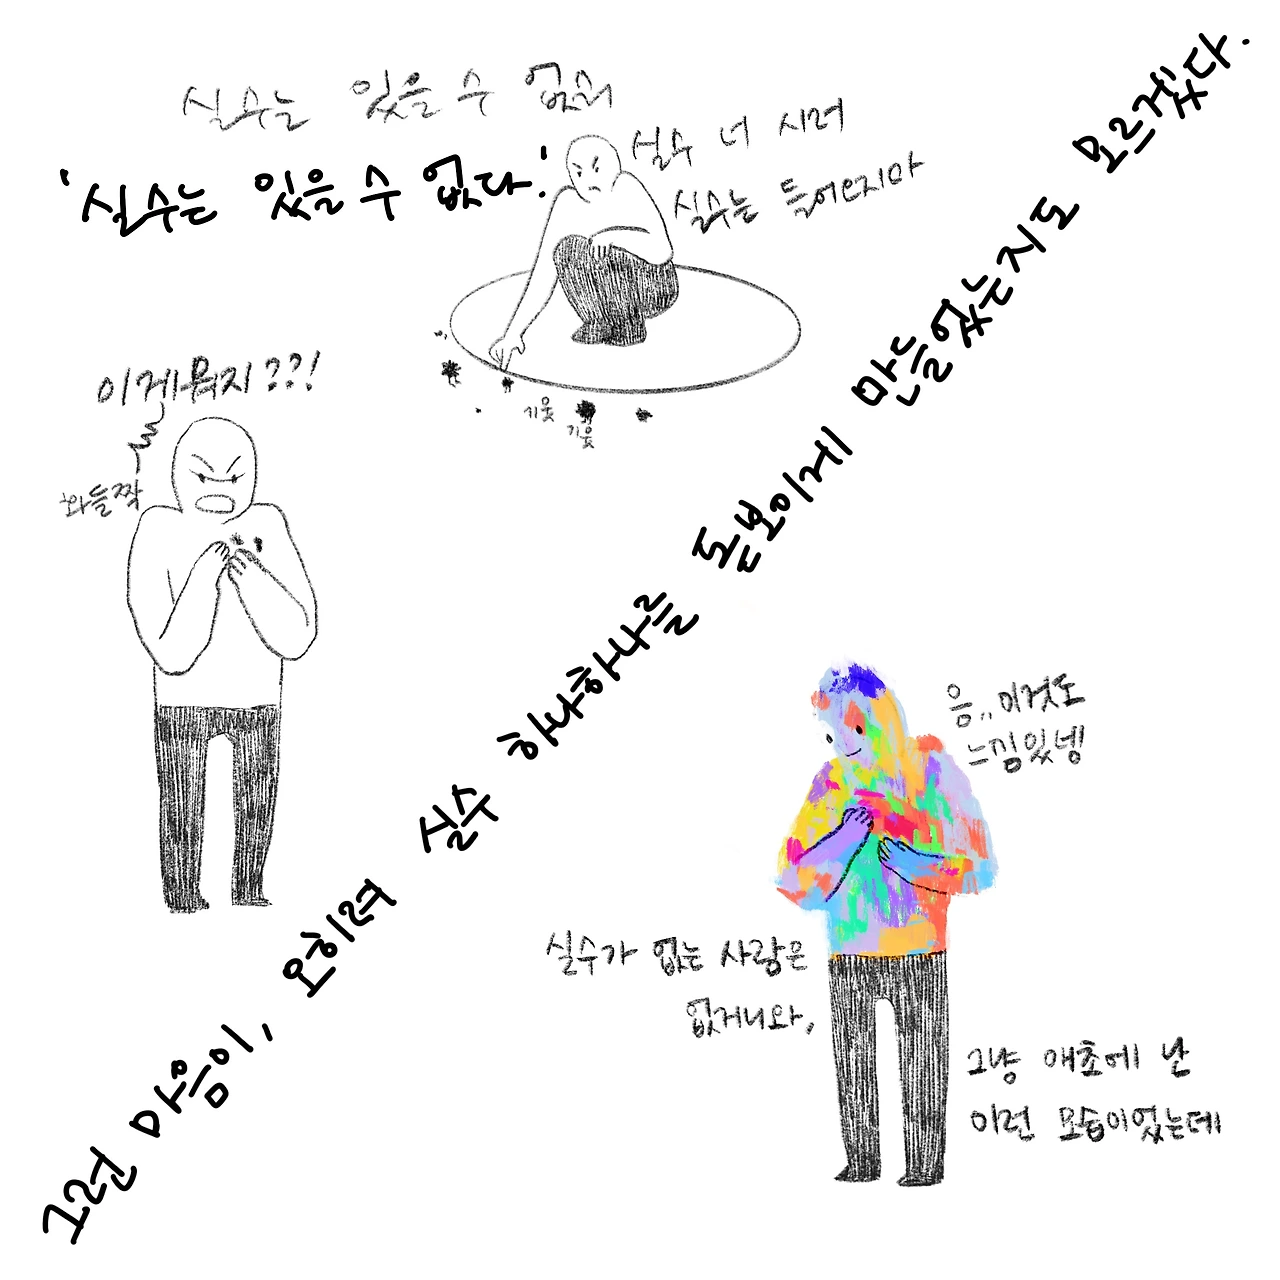 실수는 있을 수 없숴
'실수는 있을 수 없다.'
실수 너 시러
실수는 들어오지마
기웃
기웃
이게뭐지??!
화들짝
그런 마음이, 오히려 실수 하나하나를 돋보이게 만들었는지도 모르겠다.
응..이것도
느낌있넹!
실수가 없는 사람은
없거니와,
그냥 애초에 난
이런 모습이었는데